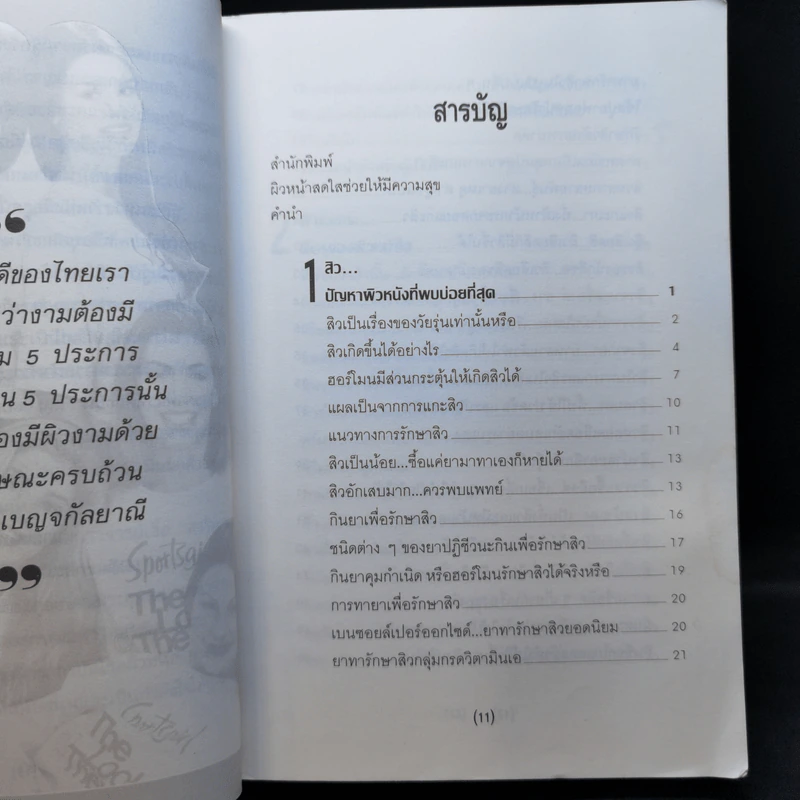 “
ดีของไทยเรา
ว่างามต้องมี
ม 5 ประการ
น 5 ประการนั้น
องมีผิวงามด้วย
ษณะครบถ้วน
เบญจกัลยาณี
”
Sportsgirl
The
The
สารบัญ
สำนักพิมพ์
ผิวหน้าสดใสช่วยให้มีความสุข
คำนำ
1 สิว...
ปัญหาผิวหนังที่พบบ่อยที่สุด 1
สิวเป็นเรื่องของวัยรุ่นเท่านั้นหรือ 2
สิวเกิดขึ้นได้อย่างไร 4
ฮอร์โมนมีส่วนกระตุ้นให้เกิดสิวได้ 7
แผลเป็นจากการแกะสิว 10
แนวทางการรักษาสิว 11
สิวเป็นน้อย...ซื้อแค่ยามาทาเองก็หายได้ 13
สิวอักเสบมาก...ควรพบแพทย์ 13
กินยาเพื่อรักษาสิว 16
ชนิดต่าง ๆ ของยาปฏิชีวนะกินเพื่อรักษาสิว 17
กินยาคุมกำเนิด หรือฮอร์โมนรักษาสิวได้จริงหรือ 19
การทายาเพื่อรักษาสิว 20
เบนซอยล์เปอร์ออกไซด์...ยาทารักษาสิวยอดนิยม 20
ยาทารักษาสิวกลุ่มกรดวิตามินเอ 21
(11)